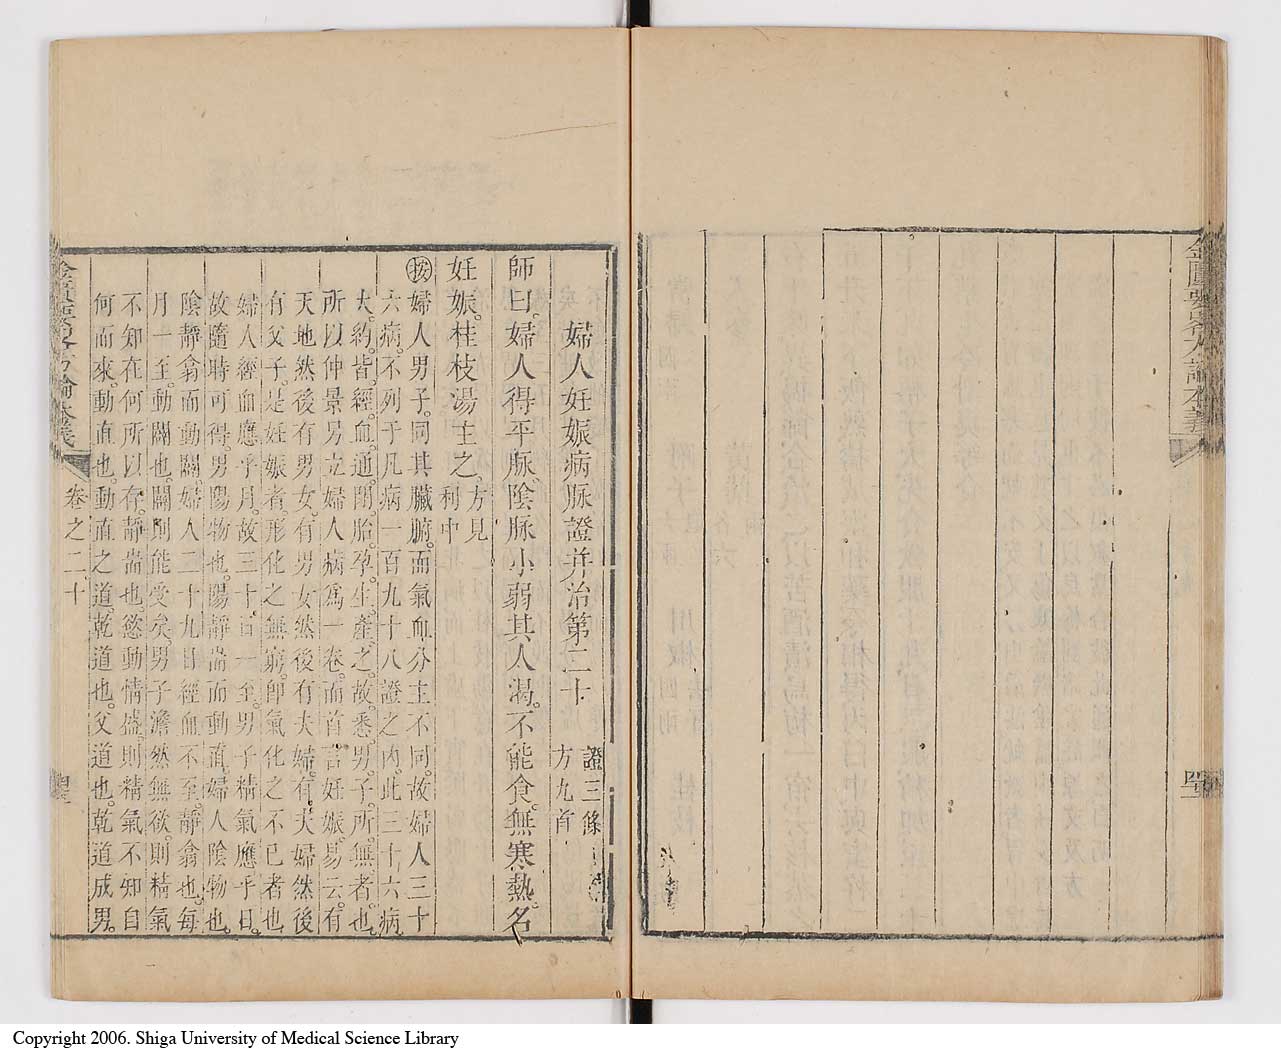 金匱要畧方論本義
婦人妊娠病脉證并治第二十
證三條
方九首
師曰婦人得平脉陰脉小弱其人渴不能食無寒熱名
妊娠桂枝湯主之
方見
利中
按婦人男子同其臟腑而氣血分主不同故婦人三十
六病不列于凡病一百九十八證之內此三十六病
大約皆經血通閉胎孕生產之故悉男子所無者也
所以仲景另立婦人病爲一卷而首言妊娠易云有
天地然後有男女有男女然後有夫婦有夫婦然後
有父子是妊娠者形化之無窮卽氣化之不已者也
婦人經血應乎月故三十日一至男子精氣應乎日
故隨時可得男陽物也陽靜耑而動直婦人陰物也
陰靜翕而動闢婦人二十九日經血不至靜翕也每
月一至動闢也闢則能受矣男子澹然無欲則精氣
不知在何所以存靜耑也慾動情盛則精氣不知自
何而來動直也動直之道乾道也父道也乾道成男
金匱要畧方論本義
卷之二十
Copyright 2006. Shiga University of Medical Science Library